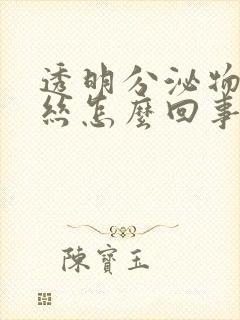 透明分泌物
丝怎麼回事
陳寶玉